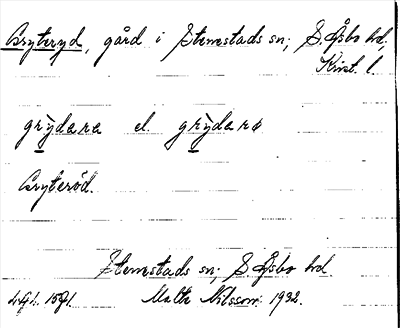 Gryteryd, gård i Stenestads sn; S. Åsbo hd,
Krist. l.
grỳdara el. grỳdarø
Gryteröd.
Stenestads sn; S. Åsbo hd
Malte Nilsson 1932.